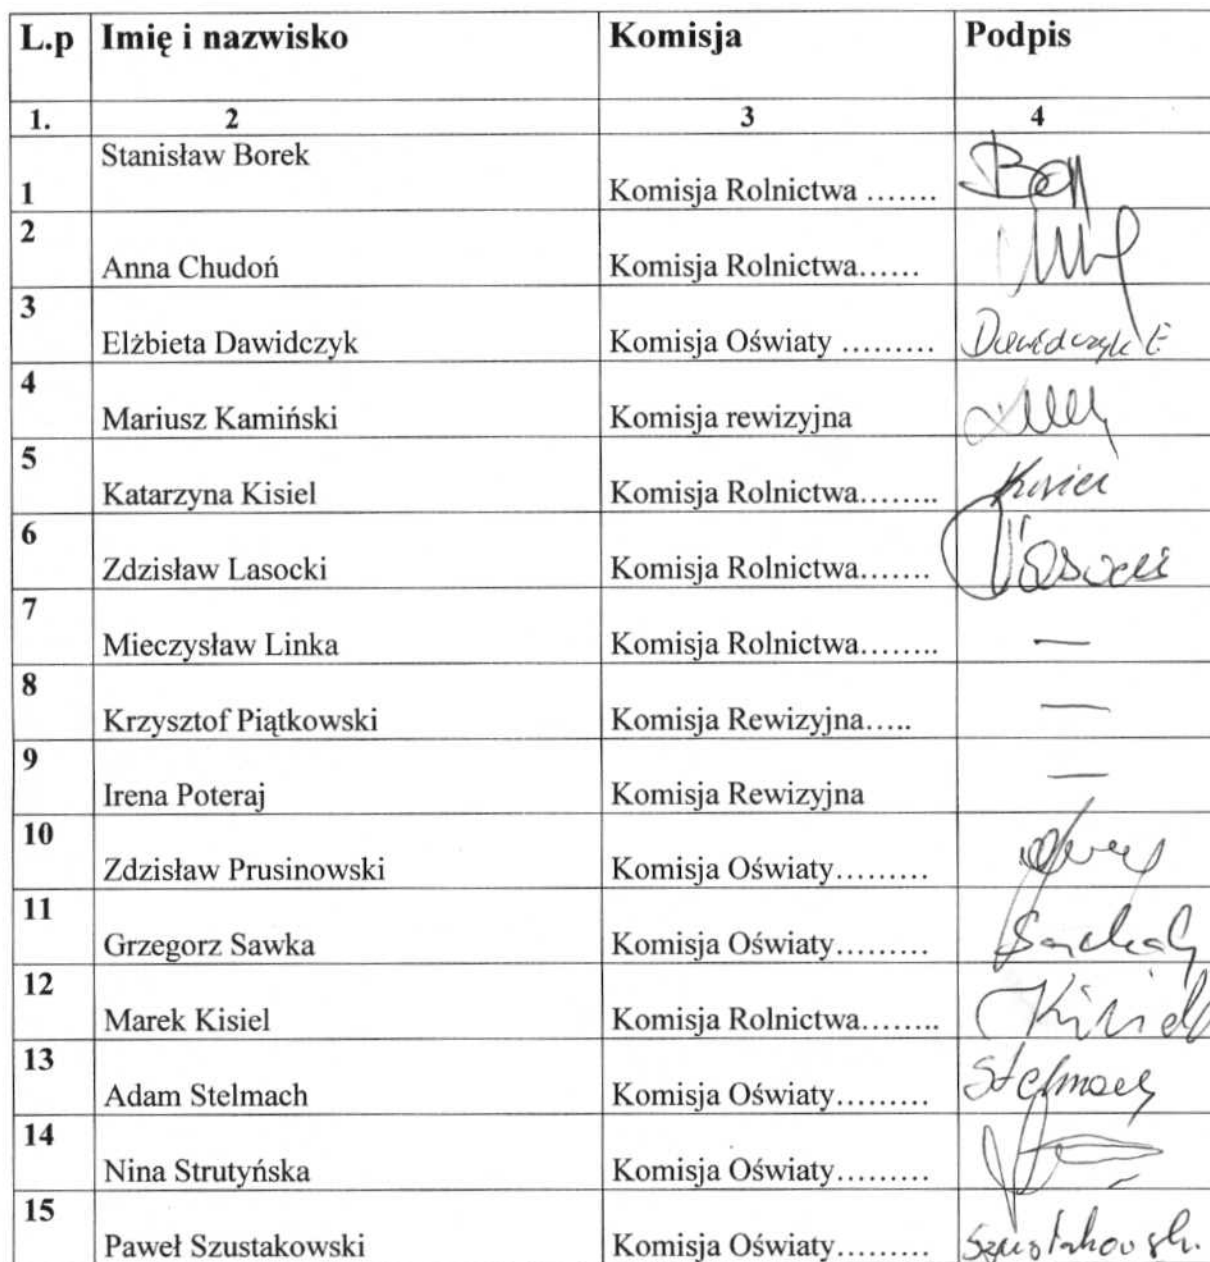 L.p Imię i nazwisko Komisja Podpis
1. 2 3 4
Stanisław Borek
1 Komisja Rolnictwa …….
2
Anna Chudoń Komisja Rolnictwa……
3
Elżbieta Dawidczyk Komisja Oświaty ……… Dawidczyk E
4
Mariusz Kamiński Komisja rewizyjna
5
Katarzyna Kisiel Komisja Rolnictwa…….. Kisiel
6
Zdzisław Lasocki Komisja Rolnictwa……. Lasocki
7
Mieczysław Linka Komisja Rolnictwa…….. —
8
Krzysztof Piątkowski Komisja Rewizyjna….. —
9
Irena Poteraj Komisja Rewizyjna —
10
Zdzisław Prusinowski Komisja Oświaty………
11
Grzegorz Sawka Komisja Oświaty………
12
Marek Kisiel Komisja Rolnictwa…….. Kisiel
13
Adam Stelmach Komisja Oświaty……… Stelmach
14
Nina Strutyńska Komisja Oświaty………
15
Paweł Szustakowski Komisja Oświaty……… Szustakowski